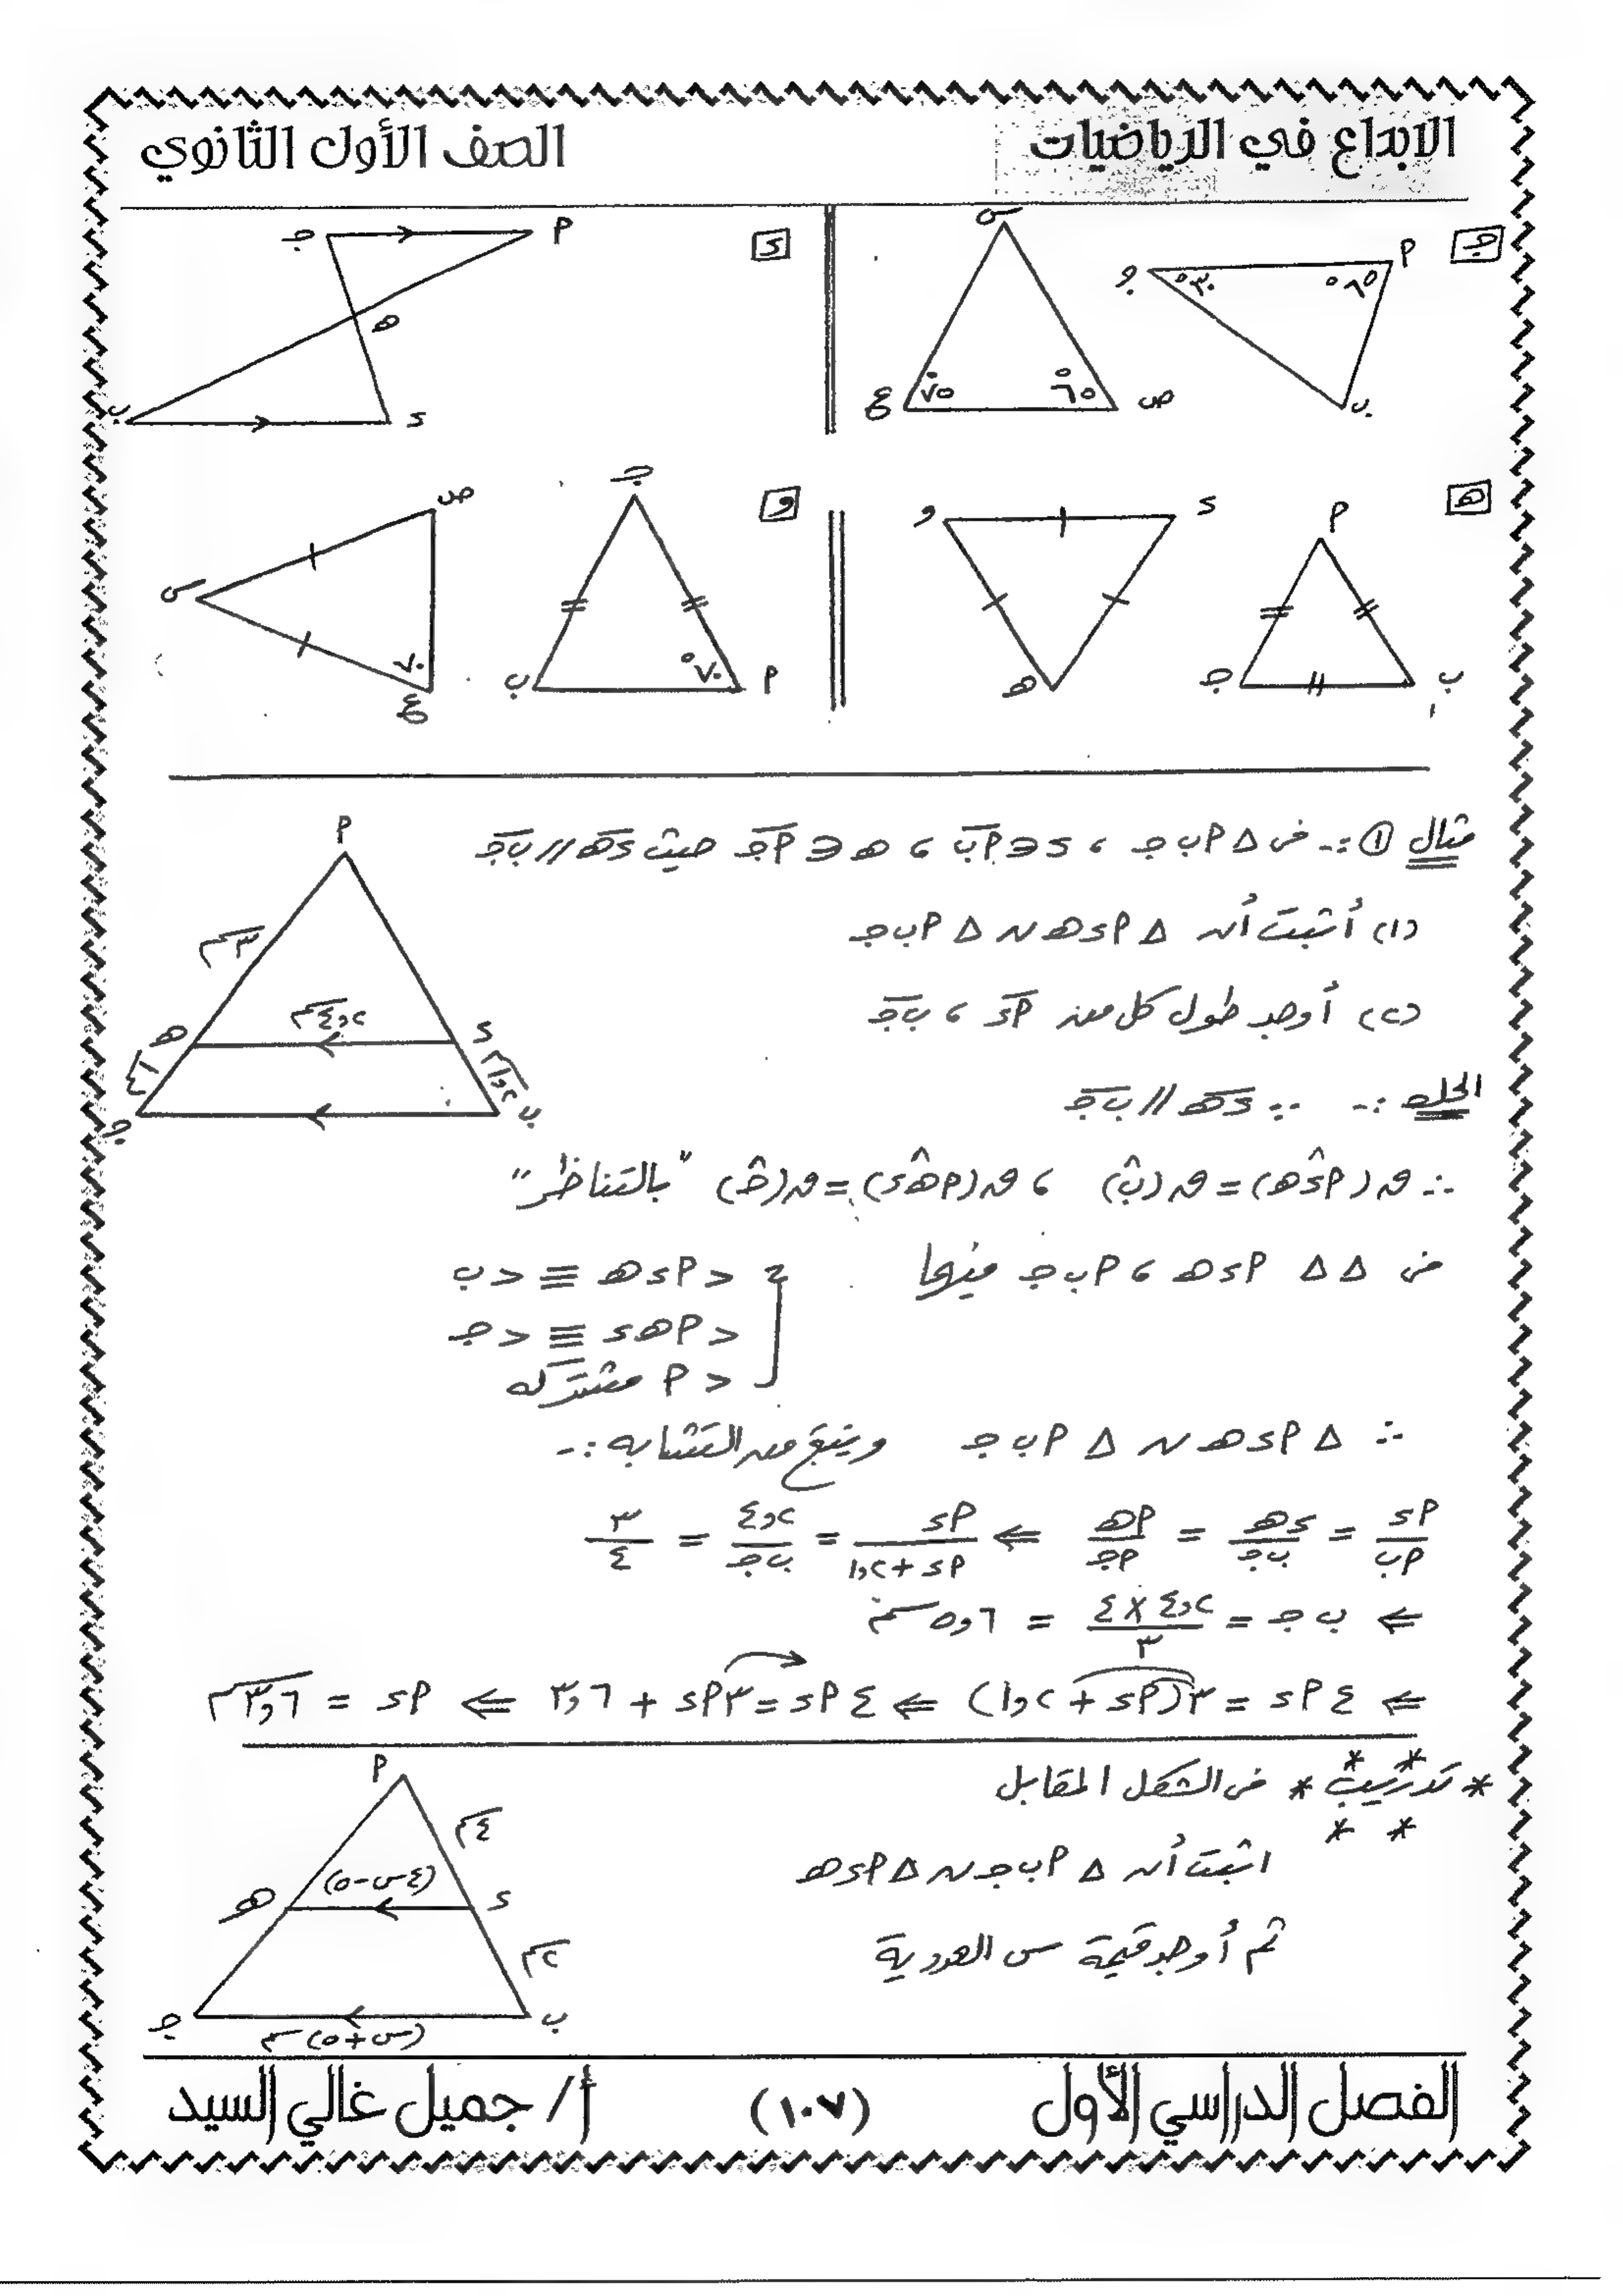 الابداع في الرياضيات
الصف الأول الثانوي
جـ
أ
جـ
ب
٦٥°
٣٠°
س
ص
ع
٦٥°
٧٥°
د
أ
جـ
هـ
ب
د
هـ
أ
ب
جـ
د
و
هـ
و
جـ
ب
أ
٧٠°
ص
س
ع
٧٠
مثال ① :- فى Δ أ ب جـ ، د ∈ أب ، هـ ∈ أجـ حيث دهـ // بجـ
(١) أثبت أن Δ أ د هـ ~ Δ أ ب جـ
(٢) أوجد طول كل من أد ، بجـ
أ
٣سم
٤,٢سم
هـ
د
١سم
١,٢سم
جـ
ب
الحل :- ∵ دهـ // بجـ
∴ ق(أدهـ) = ق(ب) ، ق(أهـد) = ق(جـ) "بالتناظر"
فى ΔΔ أ د هـ ، أ ب جـ فيهما
> أ د هـ ≡ > ب
> أ هـ د ≡ > جـ
> أ مشتركه
∴ Δ أ د هـ ~ Δ أ ب جـ وينتج من التشابه :-
أد/أب = دهـ/بجـ = أهـ/أجـ ⇐ أد/(أد + ١,٢) = ٤,٢/بجـ = ٣/٤
⇐ ب جـ = ٤,٢ × ٤ / ٣ = ٥,٦ سم
⇐ ٤ أد = ٣(أد + ١,٢) ⇐ ٤ أد = ٣ أد + ٣,٦ ⇐ أد = ٣,٦ سم
* تدريب * فى الشكل المقابل
اثبت أن Δ أ ب جـ ~ Δ أ د هـ
ثم أوجد قيمة س العددية
أ
٤سم
(٤س-٥)
هـ
د
٢سم
جـ
ب
(س+٥)سم
الفصل الدراسي الأول
(١٠٧)
أ/ جميل غالي السيد